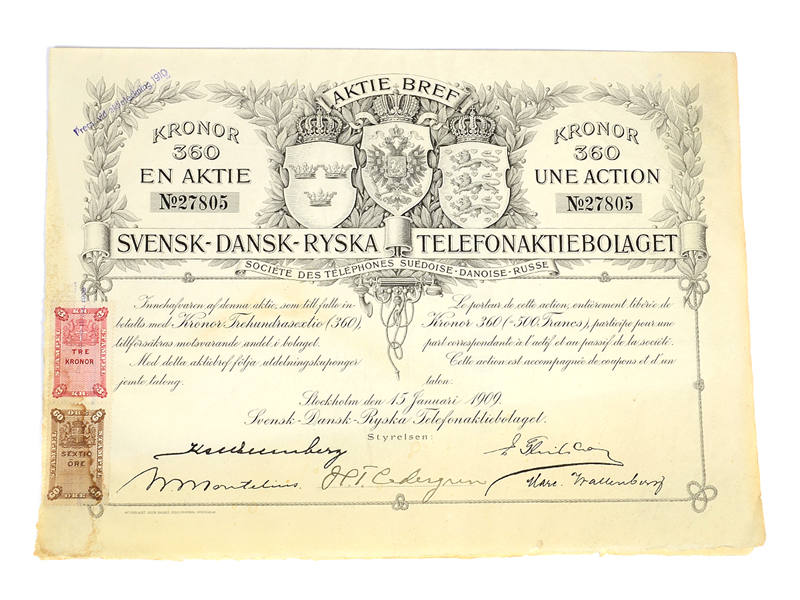 AKTIE BREF
KRONOR
360
EN AKTIE
No 27805
KRONOR
360
UNE ACTION
No 27805
SVENSK-DANSK-RYSKA TELEFONAKTIEBOLAGET
SOCIÉTÉ DES TÉLÉPHONES SUÉDOISE-DANOISE-RUSSE
Innehafvaren af denna aktie, som till fullo in-
betalts med Kronor Trehundrasextio (360),
tillförsäkras motsvarande andel i bolaget.
Med detta aktiebref följa utdelningskuponger
jemte talong.
Le porteur de cette action, entièrement libérée de
Kronor 360 (=500 Francs), participe pour une
part correspondante à l'actif et au passif de la société.
Cette action est accompagnée de coupons et d'un
talon.
Stockholm den 15 Januari 1909.
Svensk-Dansk-Ryska Telefonaktiebolaget.
Styrelsen:
H.T. Cedergren
Marc. Wallenberg
TRE
KRONOR
60
ÖRE
60
STÄMPEL
SEXTIO
ÖRE
60 ÖRE 60
1910